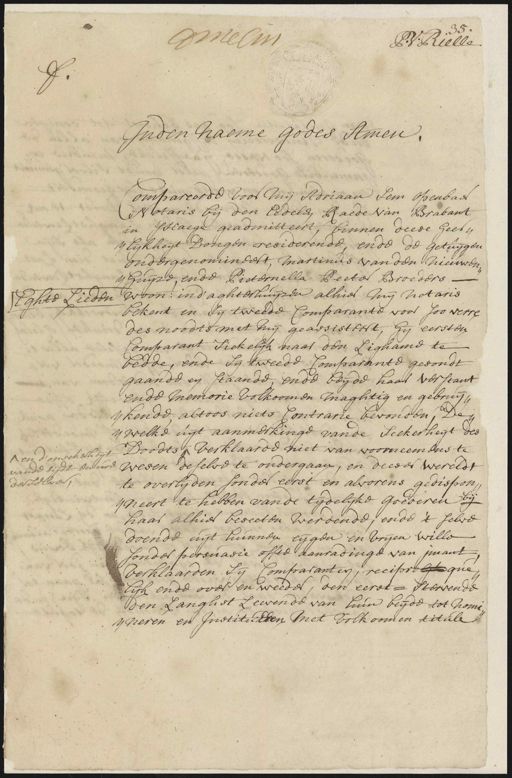 35.
P. V. Rielle
In den Naeme Godes Amen.
Compareerde voor mij Adriaan Sem openbaar
Notaris bij den Edelen Raede van Brabant
in s'Haege geadmitteert, binnen deese Heer-
lijkheijt Dongen resideerende, ende de getuijgen
ondergenomineert, Martinus van den Nieuwen-
huijse, ende Pieternella Peeter Broeders
Eghte Lieden
woon: in d'achterhuijsen alhier mij notaris
bekent en sij tweede Comparante voor soo verre
des noodts met mij geassisteert, hij eersten
Comparant Siekelijk naar den Lighame te
bedde, ende sij tweede Comparante gesondt
gaande en staande, ende beijde haar verstant
ende memorie volkoomen maghtig en gebruij-
kende, altoos niets Contrarie bevonden, De-
welke uijt aanmerkinge van de Seekerheijt des
Doodts, verklaarde niet van voorneemens te
en d'onsekerheijt
van de tijdt en uure
der selver,
wesen deselve te ondergaan, en deese wereldt
te overlijden sonder eerst en alvorens gedispon-
neert te hebben van de tijdelijke goederen bij
haar alhier beseeten werdende, ende 't selve
doende uijt hunnen eijgen en vrijen wille
sonder persuasie ofte aanraedinge van imant,
verklaarden sij Comparanten, reciproque-
lijk ende over en weeder, den eerst Stervende
den Langhst Leevende van hun beijde tot nomi-
neren en Institueren met volkoomen titule